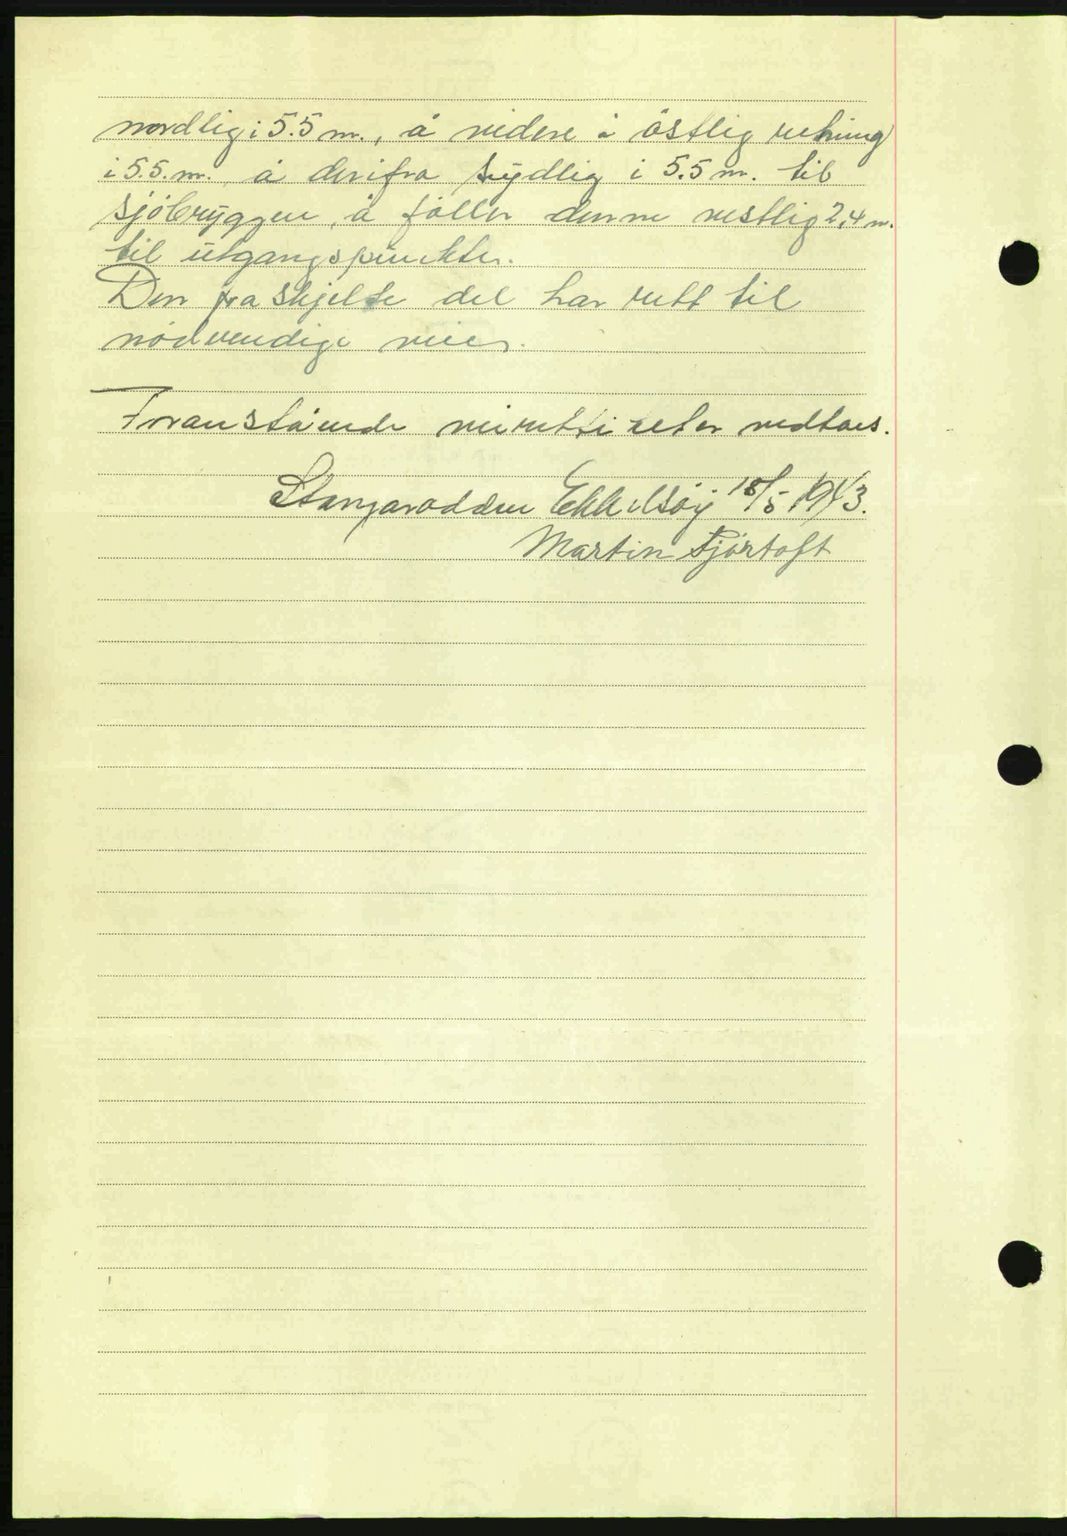 nordlig i 5.5 m., å videre i östlig retning
i 5.5. m. å derifra sydlig i 5.5 m. til
sjöbryggen, å föller denne vestlig 2,4 m.
til utgangspunkter.
Den fraskjelte del har rett til
nödvendige veier.
Franstående veirettiheter vedtaes.
Ekkilsöy 15/5 1943.
Martin Fjörtoft